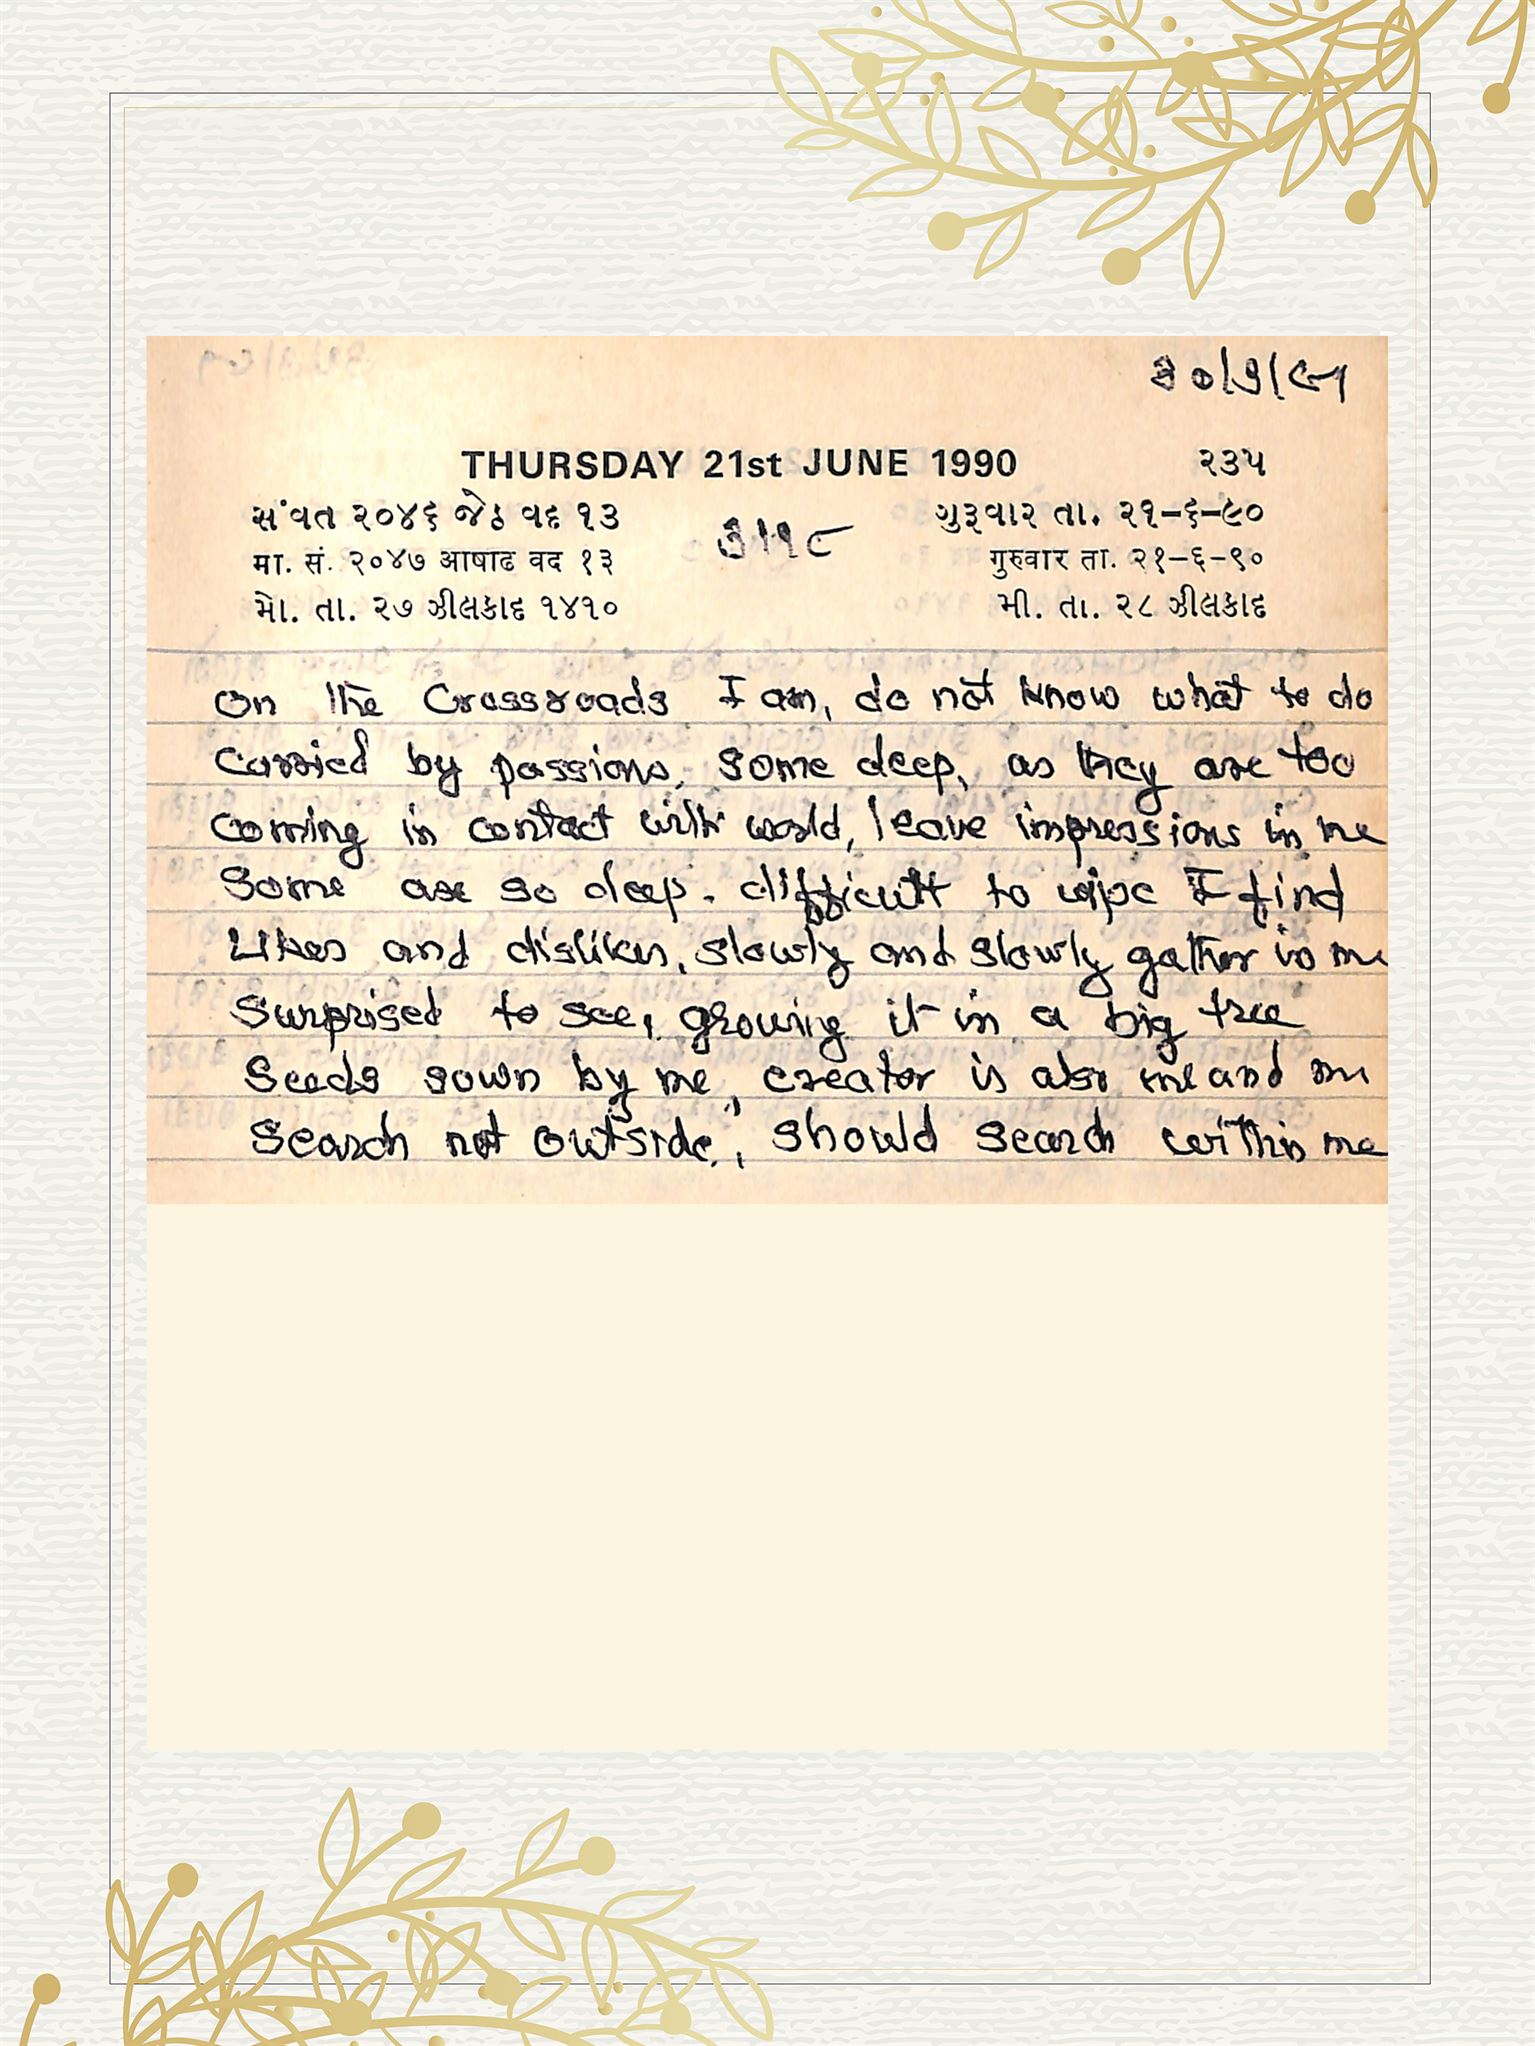 ૩૦/૭/૯૧
THURSDAY 21st JUNE 1990 ૨૩૫
સંવત ૨૦૪૬ જેઠ વદ ૧૩ ગુરૂવાર તા. ૨૧-૬-૯૦
मा. सं. २०४७ आषाढ वद १३ गुरुवार ता. २१-६-९०
મો. તા. ૨૭ ઝીલકાદ ૧૪૧૦ મી. તા. ૨૮ ઝીલકાદ
On the Crossroads I am, do not know what to do
Carried by passions, some deep, as they are too
Coming in contact with world, leave impressions in me
Some are so deep. difficult to wipe I find
Likes and dislikes, slowly and slowly gather in me
Surprised to see, growing it in a big tree
Seeds sown by me, creator is also me and me
Search not outside, should search within me